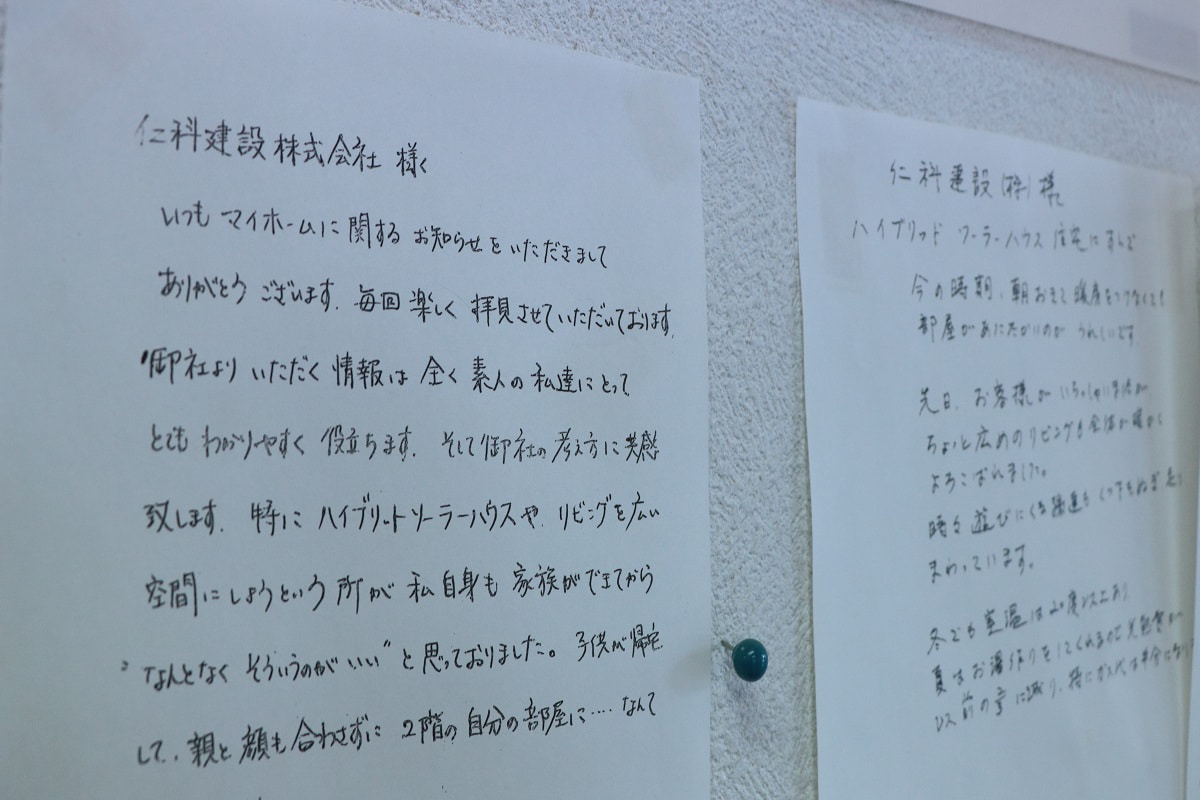 仁科建設株式会社 様
いつも マイホームに関する お知らせをいただきまして
ありがとう ございます。毎回 楽しく 拝見させていただいております。
御社より いただく 情報は 全く 素人の 私達にとって
とても わかりやすく 役立ちます。そして 御社の 考え方に 共感
致します。特に ハイブリットソーラーハウスや リビングを広い
空間にしようという 所が 私自身も 家族ができてから
"なんとなく そういうのが いい" と思っておりました。子供が 帰宅
して、親と 顔も合わさずに 2階の 自分の 部屋に‥‥なんて
仁科建設(株)様
ハイブリッド ソーラーハウス 住宅にすんで
今の時期、朝おきて 暖房をつけなくても
部屋があたたかいのが うれしいです。
先日、お客様が いらっしゃいましたが
ちょっと広めのリビングも全体が暖かく
よろこばれました。
時々 遊びにくる 孫達も くつ下もぬぎ 走り
まわっています。
冬でも 室温は20度以上あり
夏はお湯作りをしてくれるので 光熱費が
以前の に減り、特にガス代は半分になり